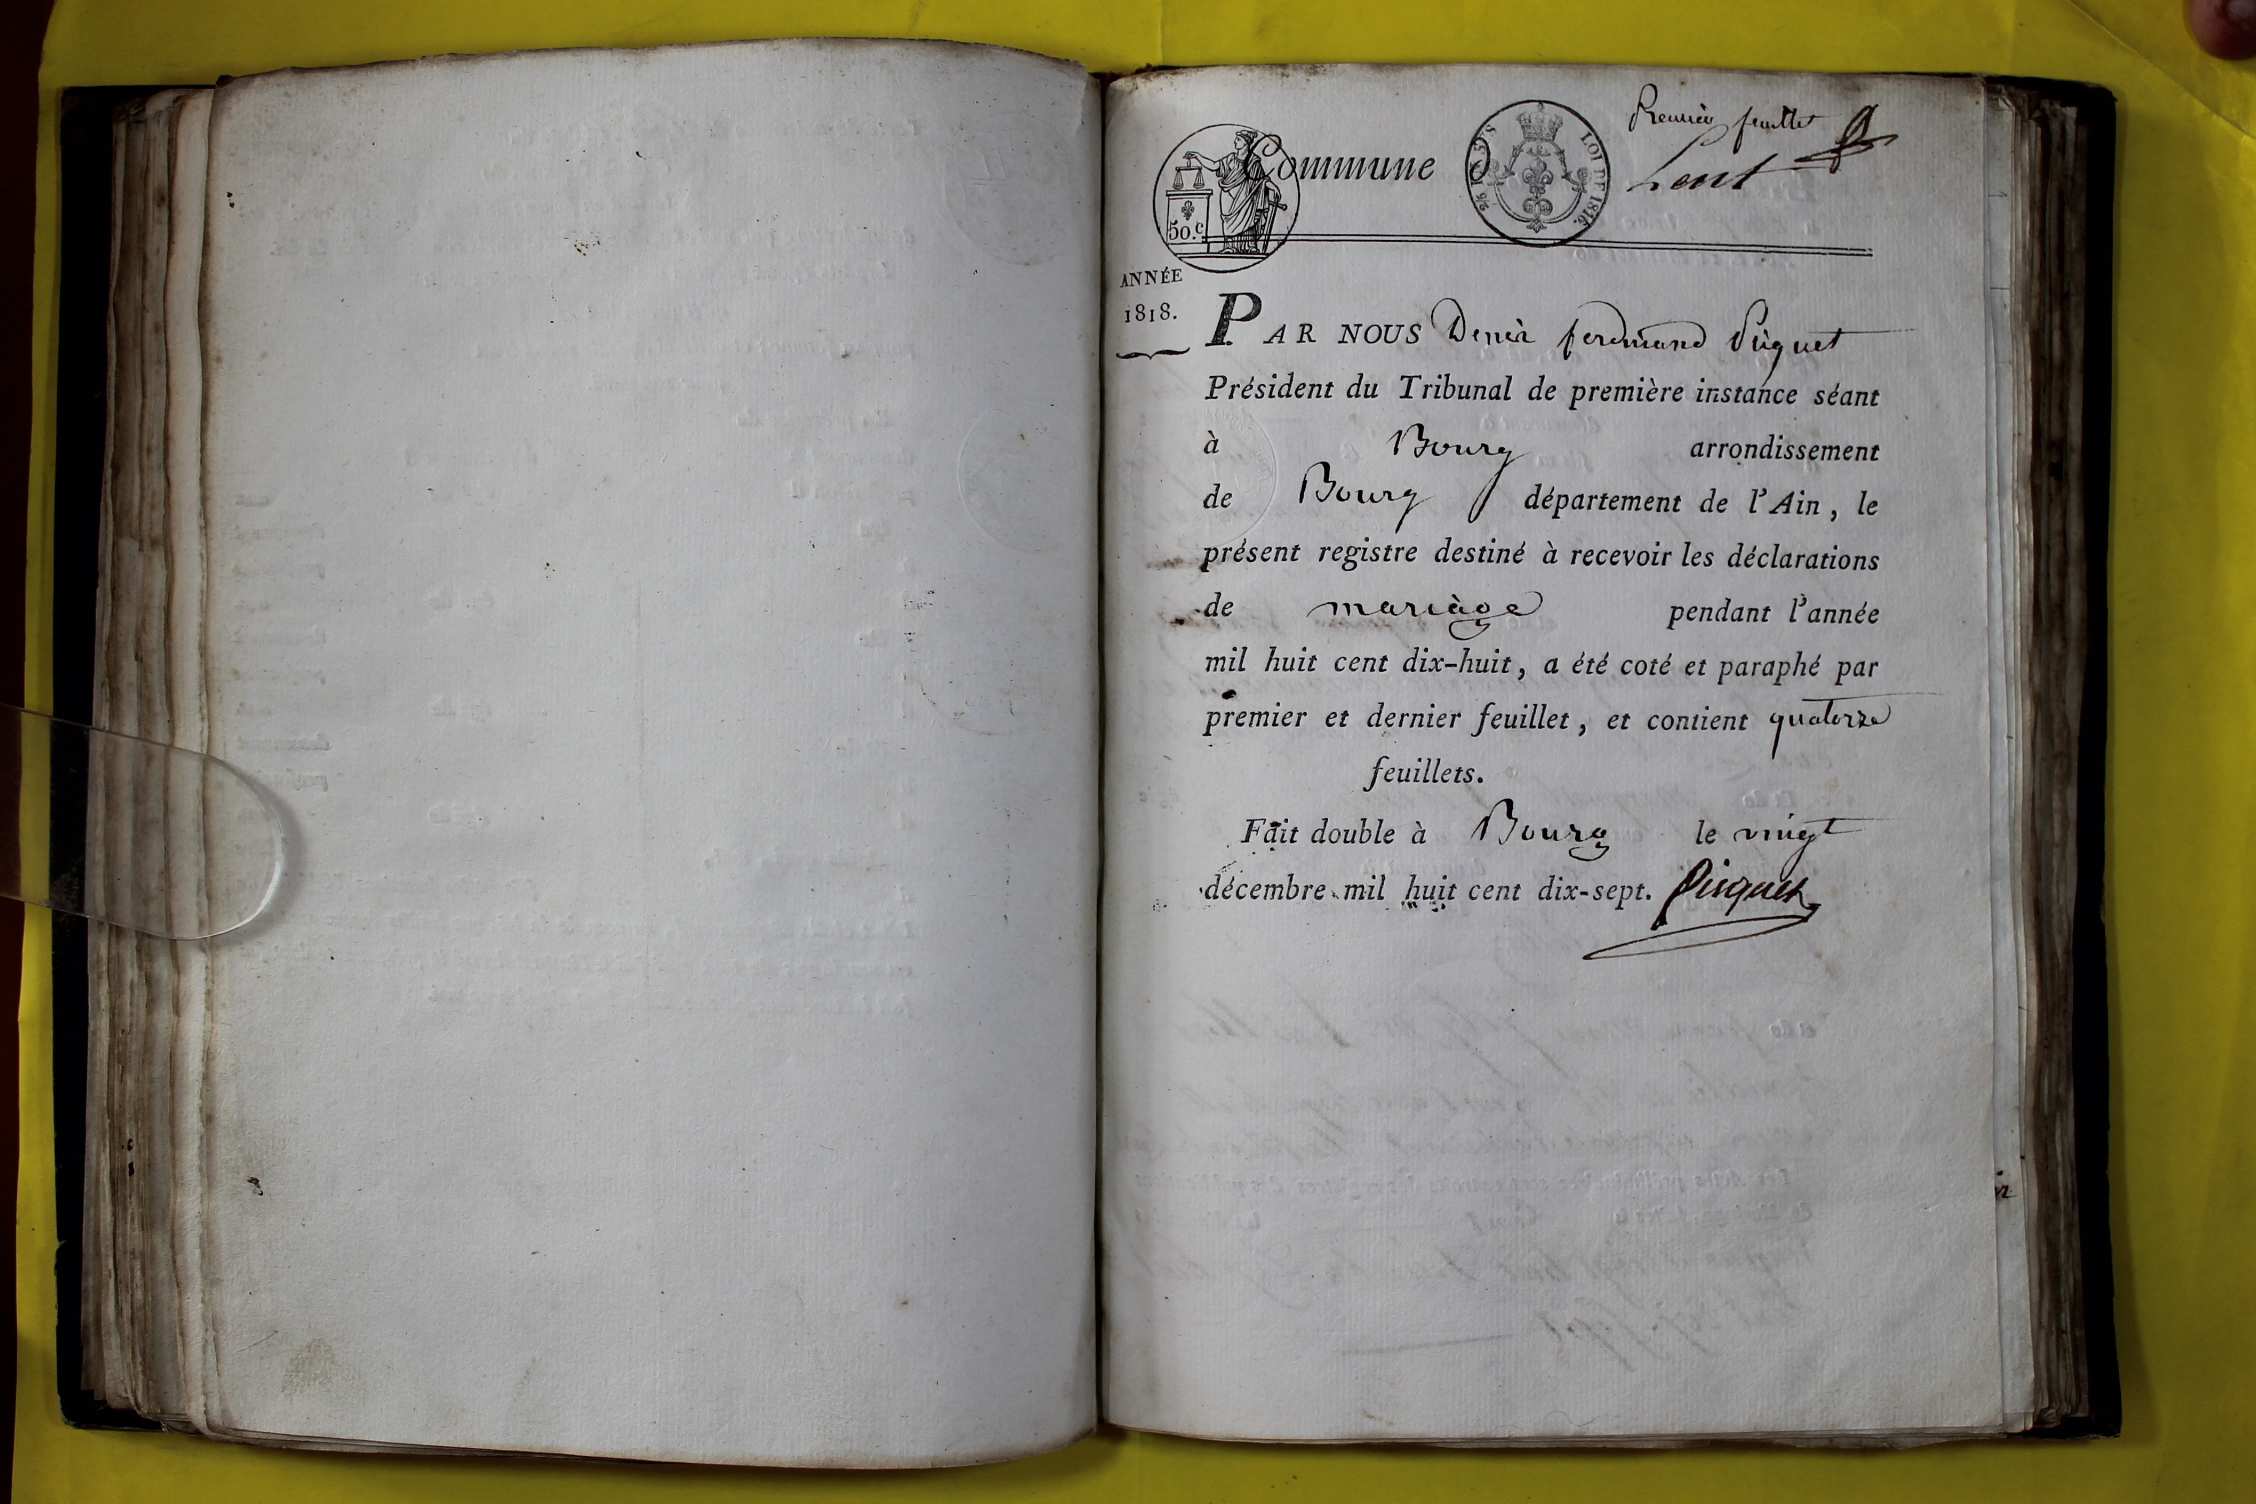 Premier feuillet
Commune de Lent
25 P. % EN SUS
LOI DE 1816.
50.c
ANNÉE
1818.
PAR NOUS Denis ferdinand Piquet
Président du Tribunal de première instance séant
à Bourg arrondissement
de Bourg département de l'Ain, le
présent registre destiné à recevoir les déclarations
de mariage pendant l'année
mil huit cent dix-huit, a été coté et paraphé par
premier et dernier feuillet, et contient quatorze
feuillets.
Fait double à Bourg le vingt
décembre mil huit cent dix-sept. Piquet